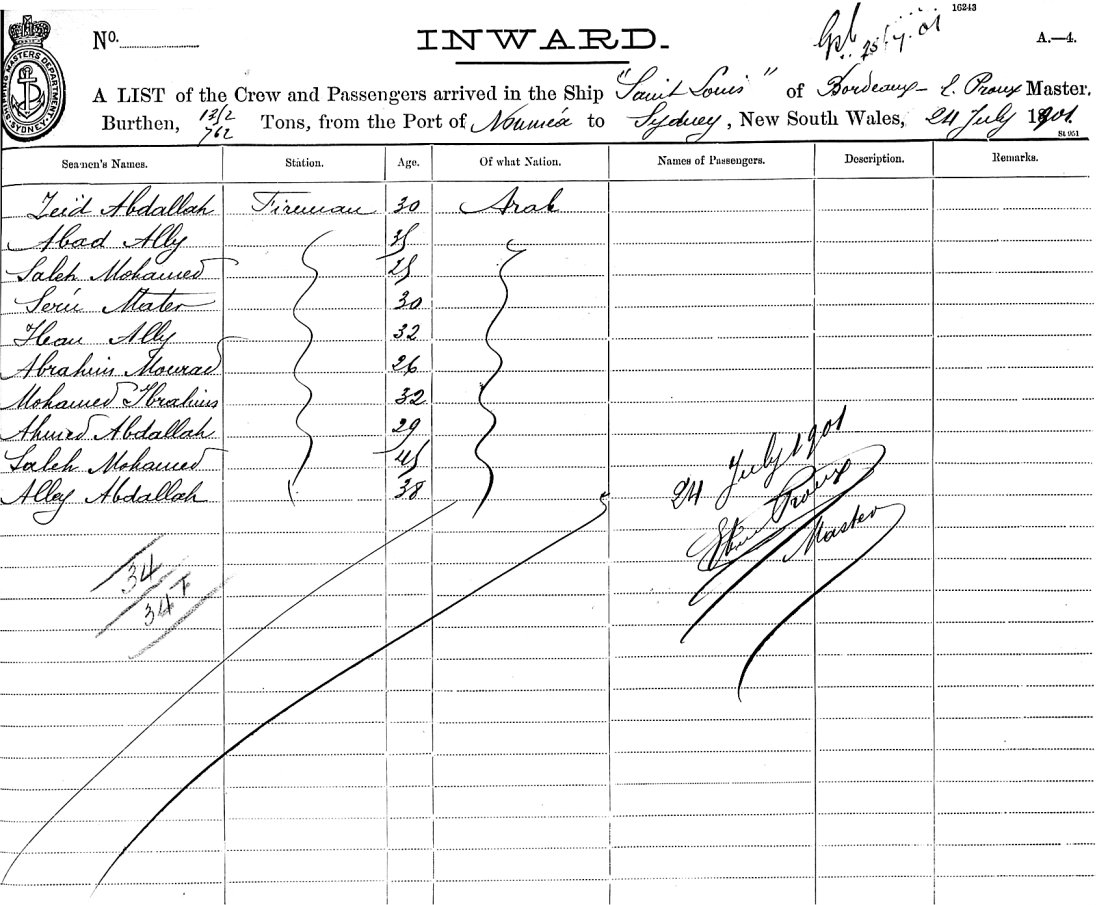 16243
No.
INWARD.
25/7.01
A.—4.
SHIPPING MASTERS DEPARTMENT SYDNEY
A LIST of the Crew and Passengers arrived in the Ship "Saint Louis" of Bordeaux – E. Proux Master,
Burthen, 1312/762 Tons, from the Port of Nouméa to Sydney, New South Wales, 24 July 1901
St 951
Seamen's Names. Station. Age. Of what Nation. Names of Passengers. Description. Remarks.
Zeid Abdallah Fireman 30 Arab
Abad Ally 35
Saleh Mohamed 25
Mater 30
Ally 32
Abrahim Mourad 26
Mohamed Ibrahim 32
Ahmed Abdallah 29
Saleh Mohamed 45
Alley Abdallah 38
24 July 1901
Proux
Master
34
34 F